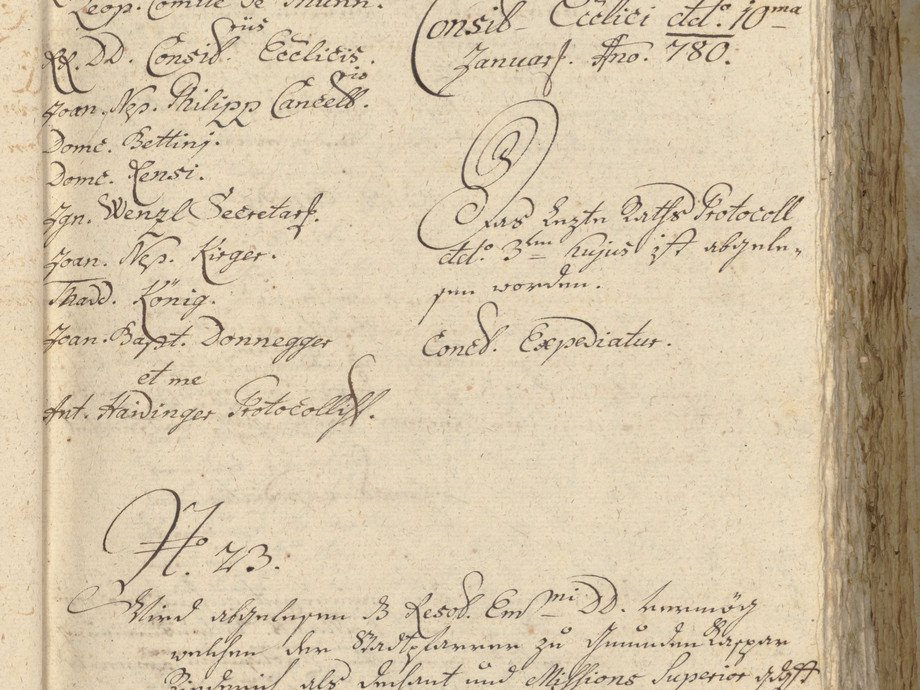 Leop. Comite de Thunn.
RR. DD. Consil. Ecclicis.
Joan. Nep. Philipp Cancell.rio
Domc. Bettinj.
Domc. Rensi.
Ign. Wenzl Secretari.
Joan. Nep. Kieger.
Thadd. König.
Joan. Bapt. Donnegger
et me
Ant. Haidinger Protocollist.
Consil. Ecclici ddo. 10ma
Januarj. Ano. 780.
Das Lezte Raths Protocoll
ddo. 3tia hujus ist abgele-
sen worden.
Concl. Expediatur.
No. 23.
Wird abgelesen Resol. Emmi DD. vermög
welchen der Stadtpfarrer zu Gmunden Kaspar
als Dechant und Missions Superior